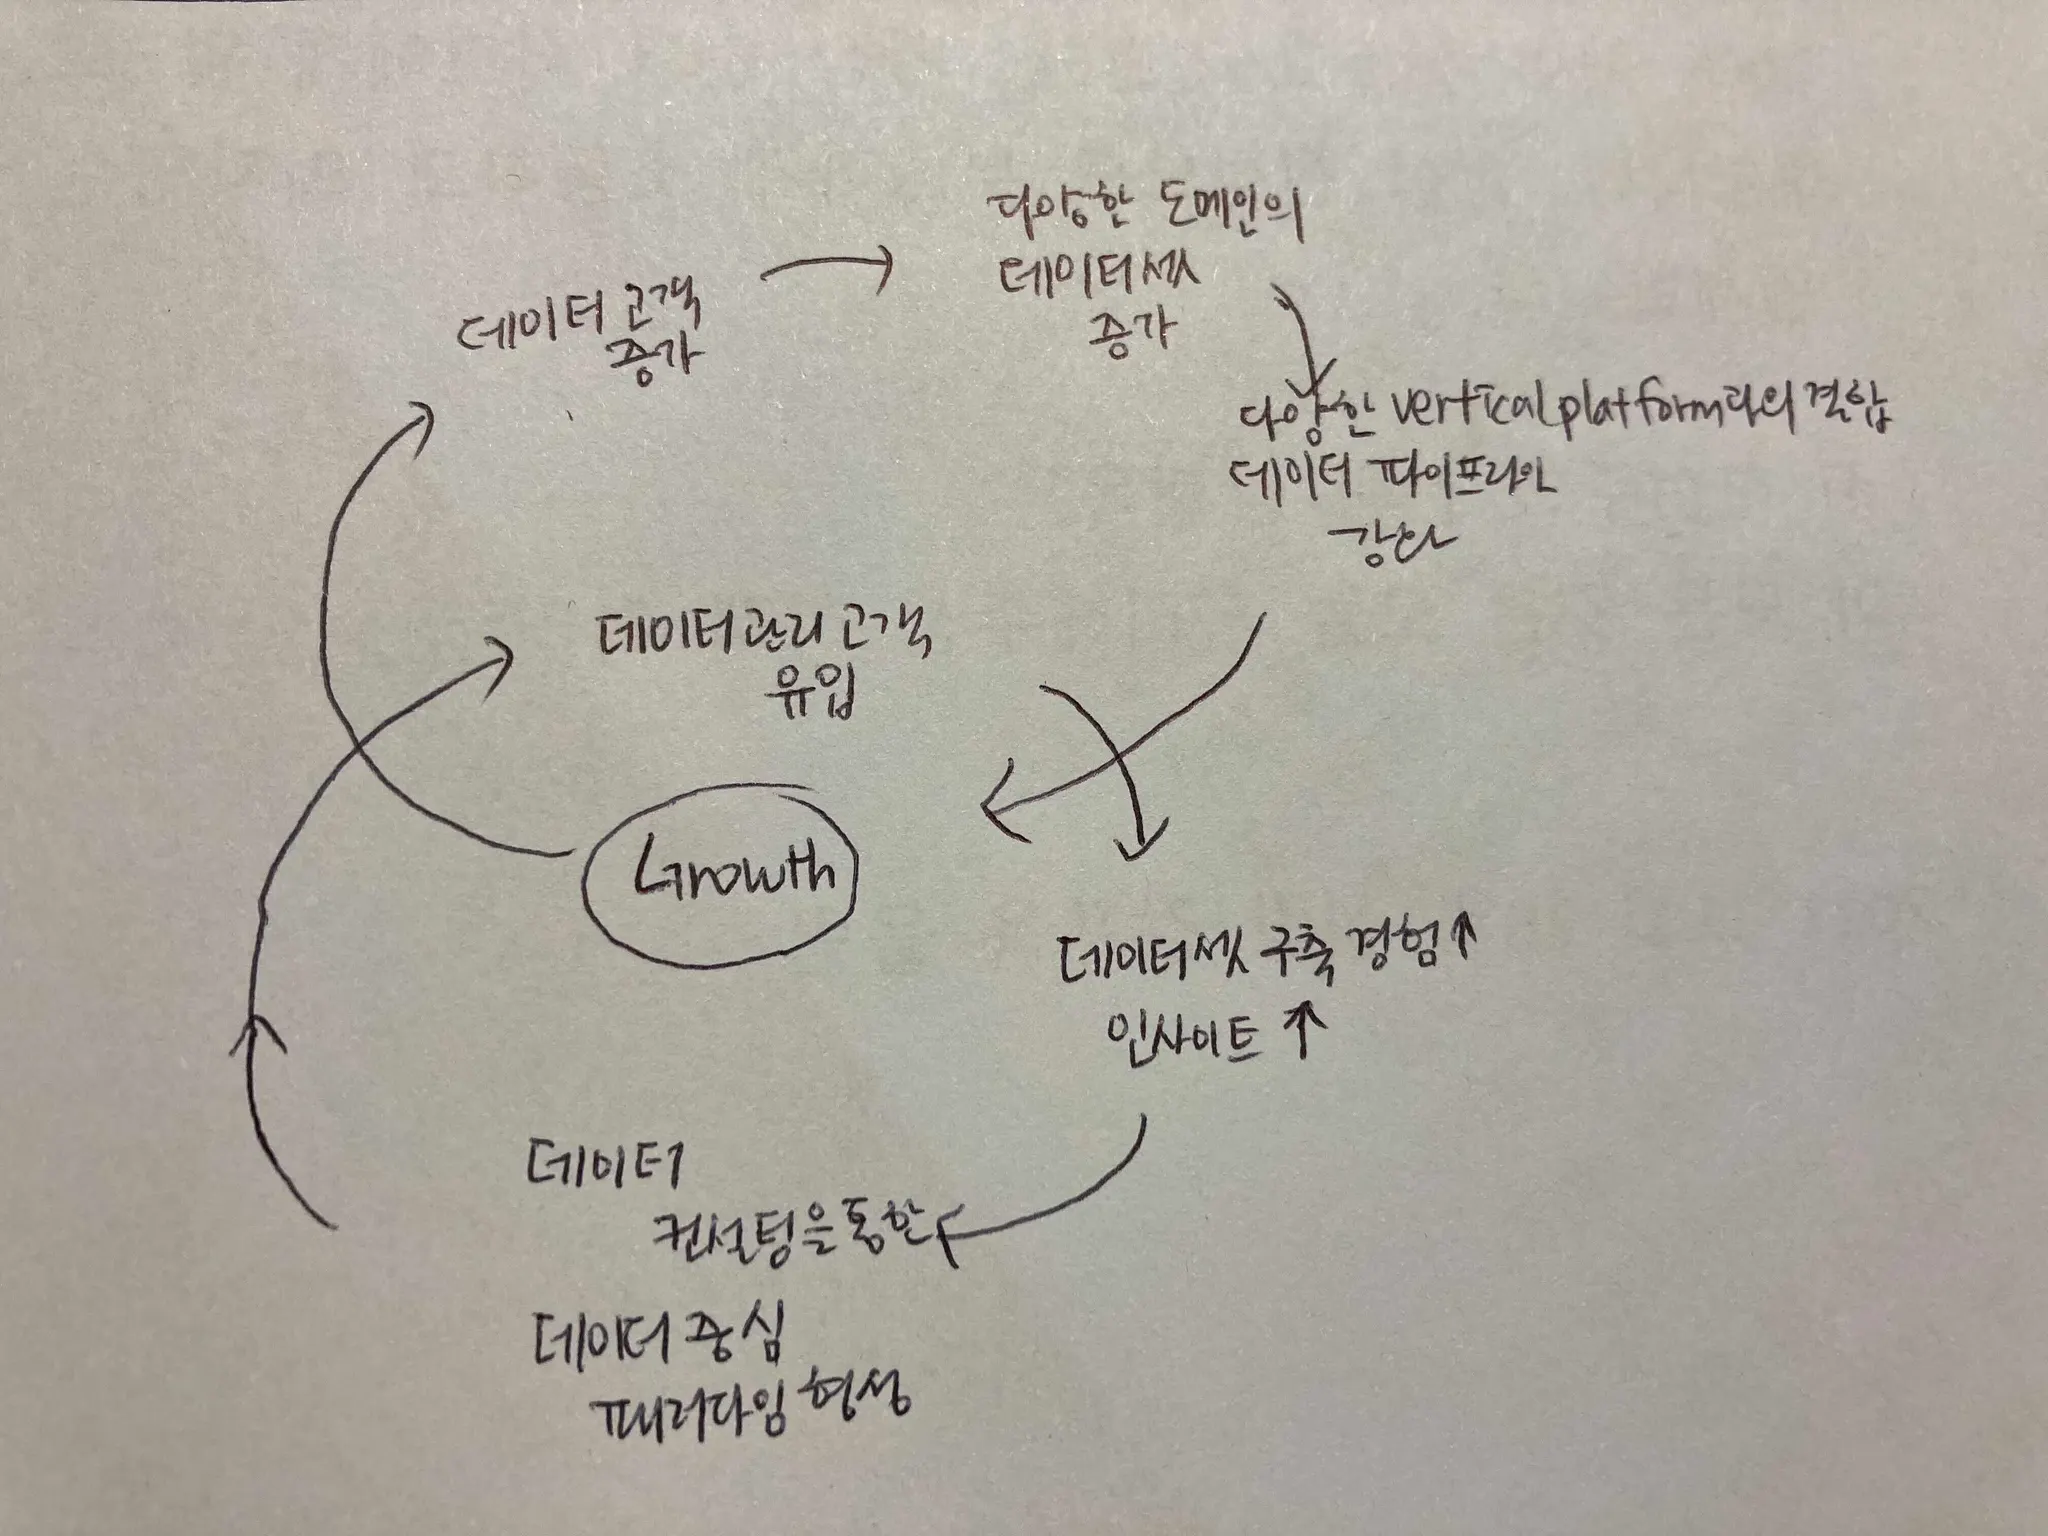 데이터 고객
증가
다양한 도메인의
데이터셋
증가
다양한 vertical platform과의 결합
데이터 파이프라인
강화
데이터 관리 고객
유입
Growth
데이터셋 구축 경험↑
인사이트 ↑
데이터
컨설팅을 통한
데이터 중심
패러다임 형성